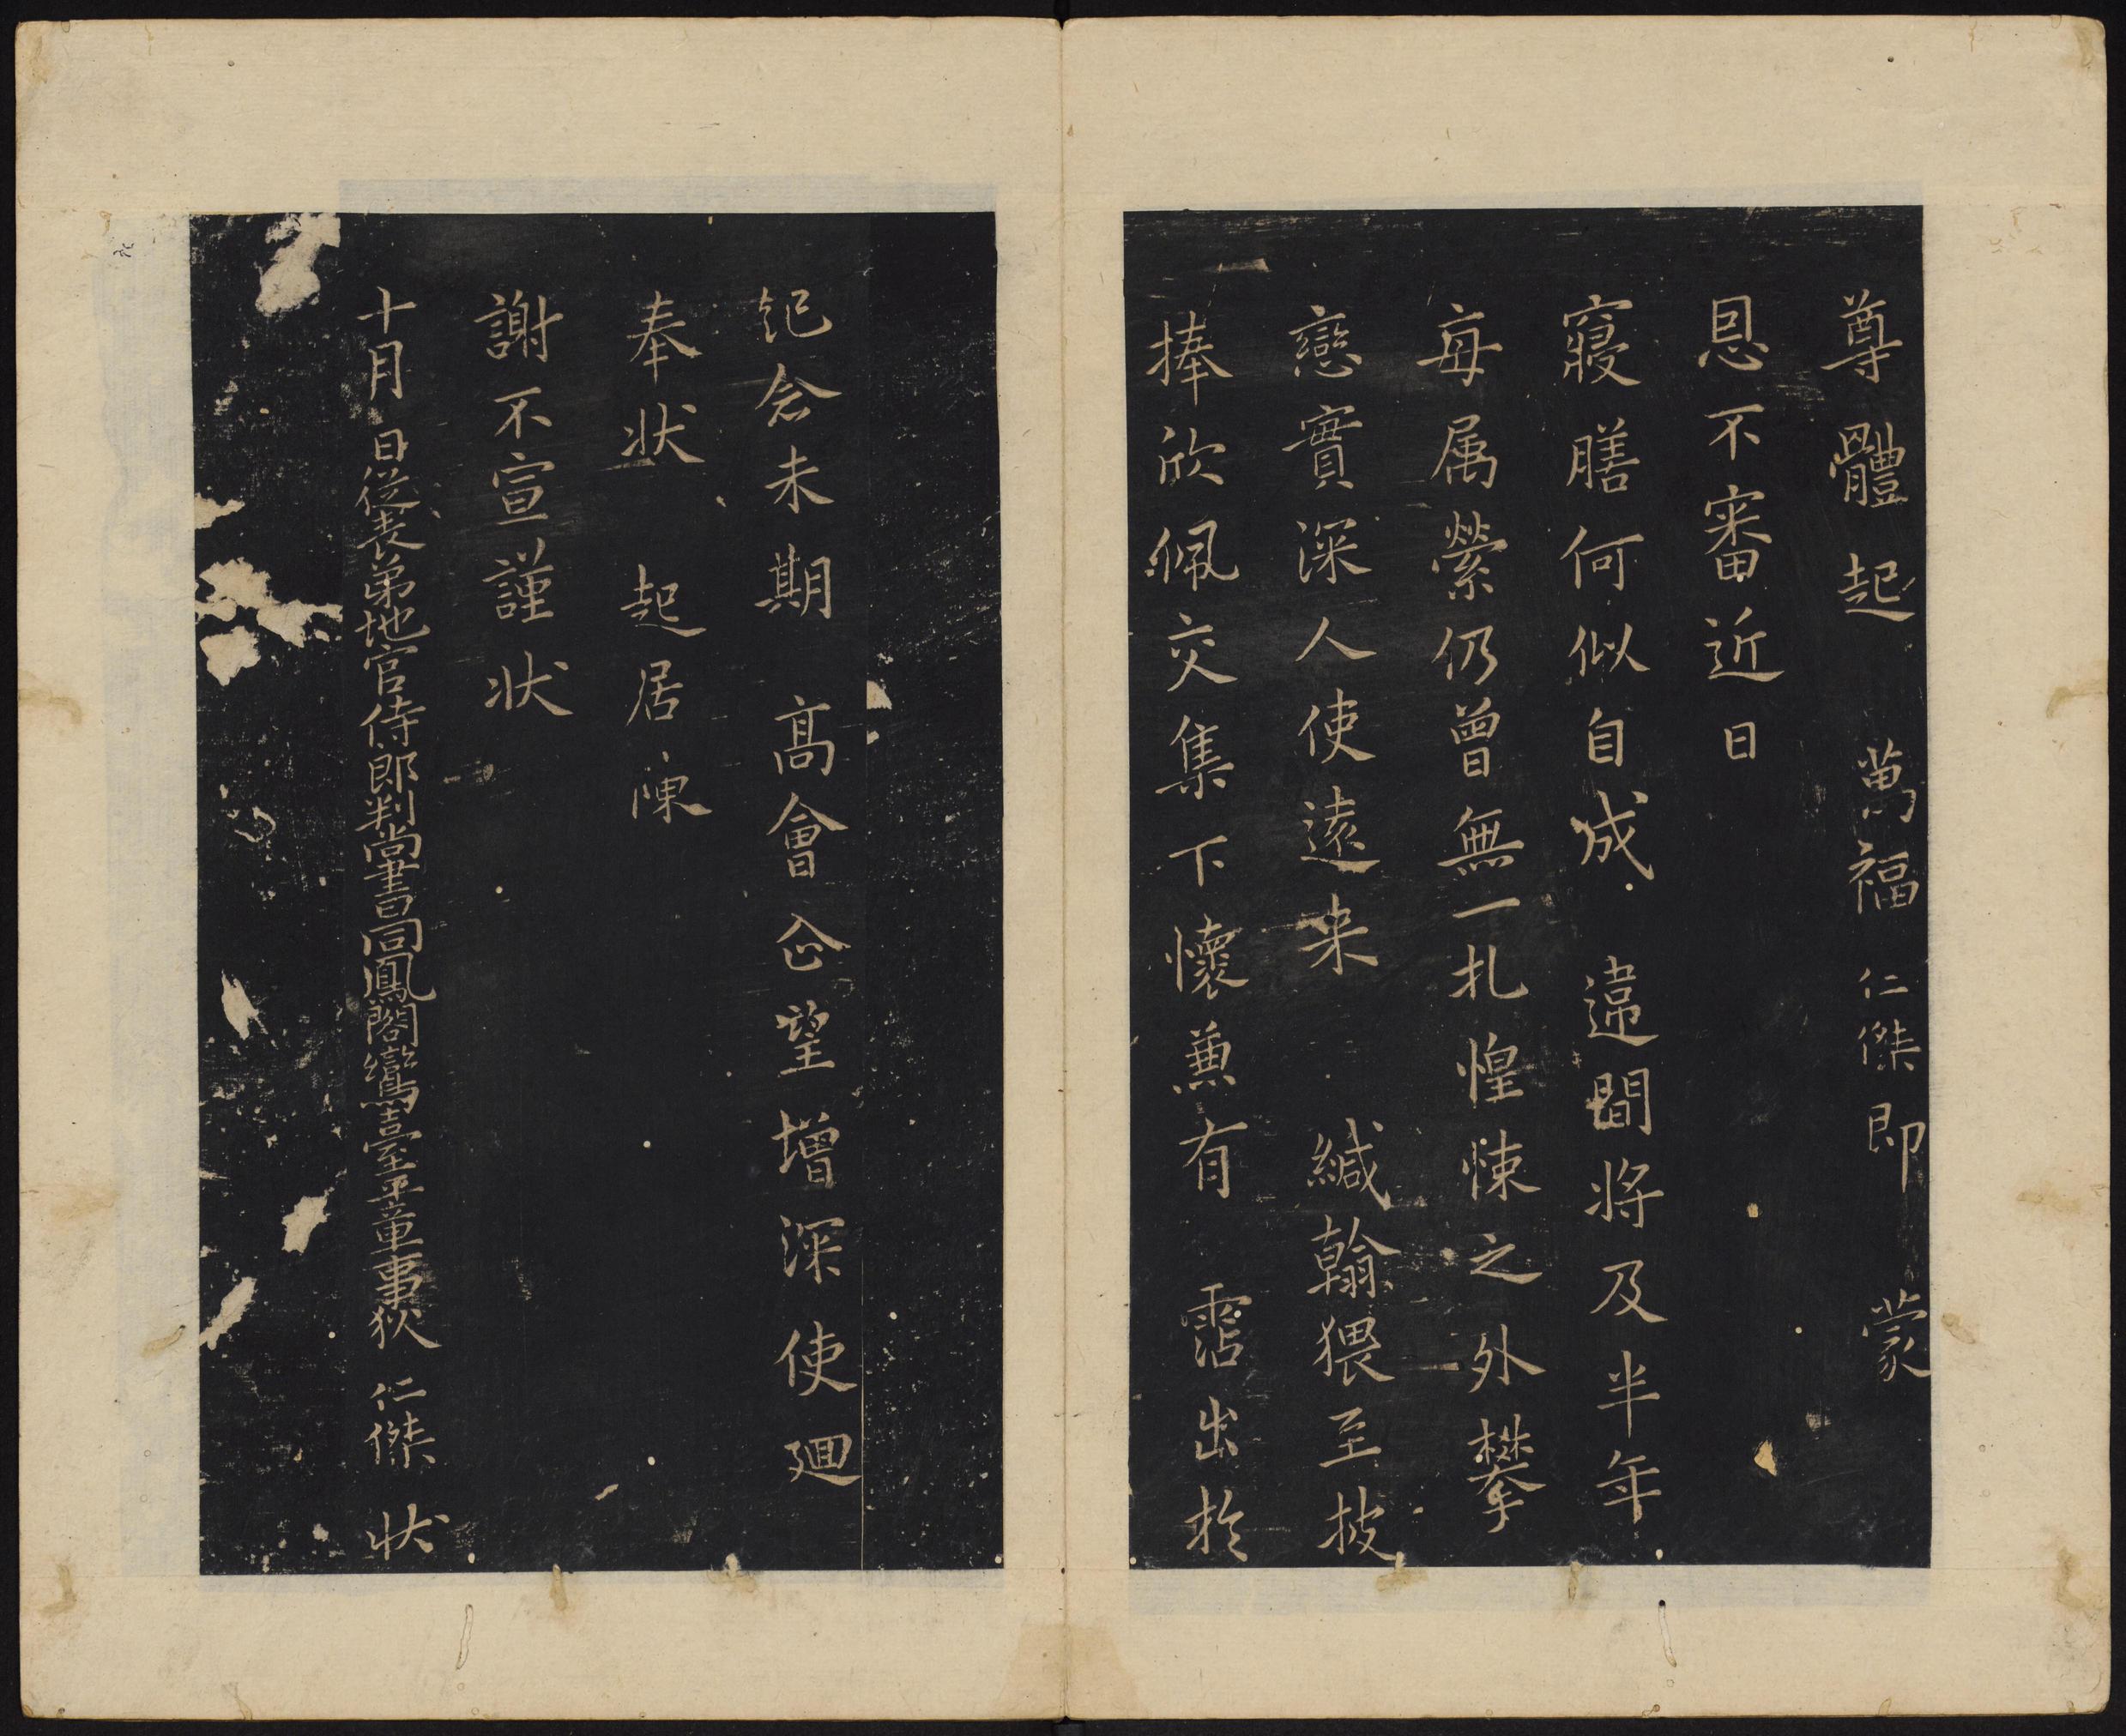 尊體起 萬福仁傑即 蒙
恩不審近日
寢膳何似自成 違間將及半年
每属縈仍曾無一扎惶悚之外攀
戀實深人使遠来 緘翰猥至披
捧欣佩交集下懷蒹有 霑出扵
䂓念未期 髙會企望增深使廻
奉状 起居陳
謝不宣謹状
十月日從表弟地官侍郎判尚書同鳳閣鸞臺平章事狄 仁傑 状